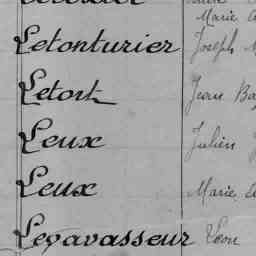 Marie
Letonturier Joseph
Letort Jean
Leux Julien
Leux Marie
Leçavasseur Léon